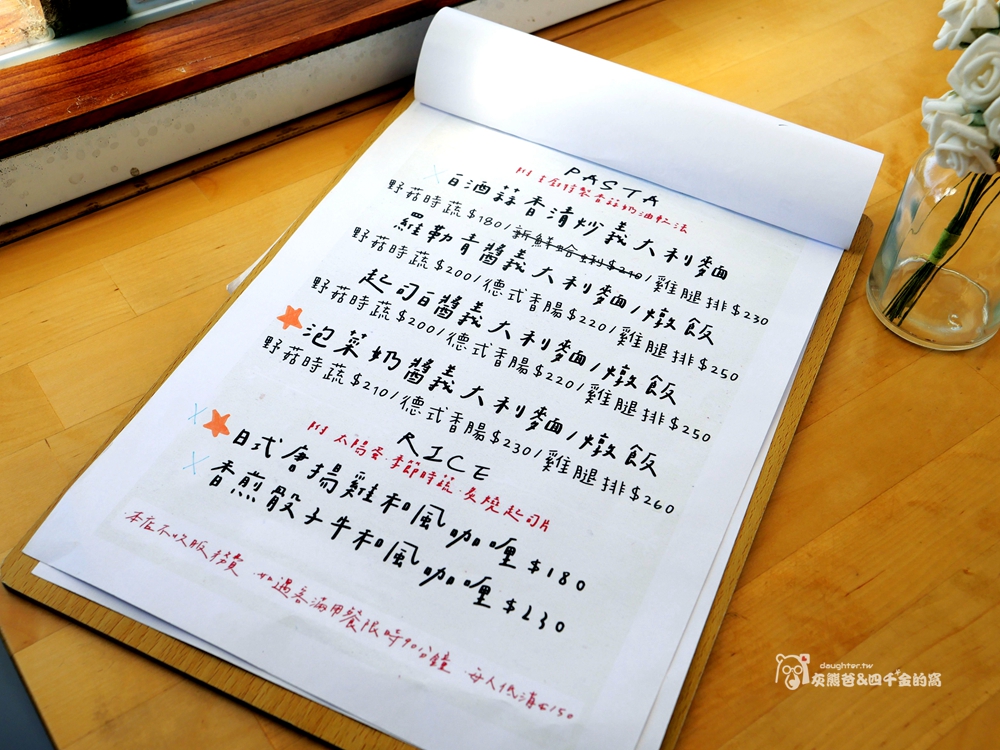 PASTA
白酒蒜香清炒義大利麵
野菇時蔬$180/新鮮蛤蜊$210/雞腿排$230
羅勒青醬義大利麵/燉飯
野菇時蔬$200/德式香腸$220/雞腿排$250
起司白醬義大利麵/燉飯
野菇時蔬$200/德式香腸$220/雞腿排$250
泡菜奶醬義大利麵/燉飯
野菇時蔬$210/德式香腸$230/雞腿排$260
RICE
附 太陽蛋.季節時蔬.炙燒起司片
日式唐揚雞和風咖哩$180
香煎骰子牛和風咖哩$230
本店不收服務費 如遇客滿用餐限時90分鐘 每人低消$150
daughter.tw
灰熊爸&四千金的窩